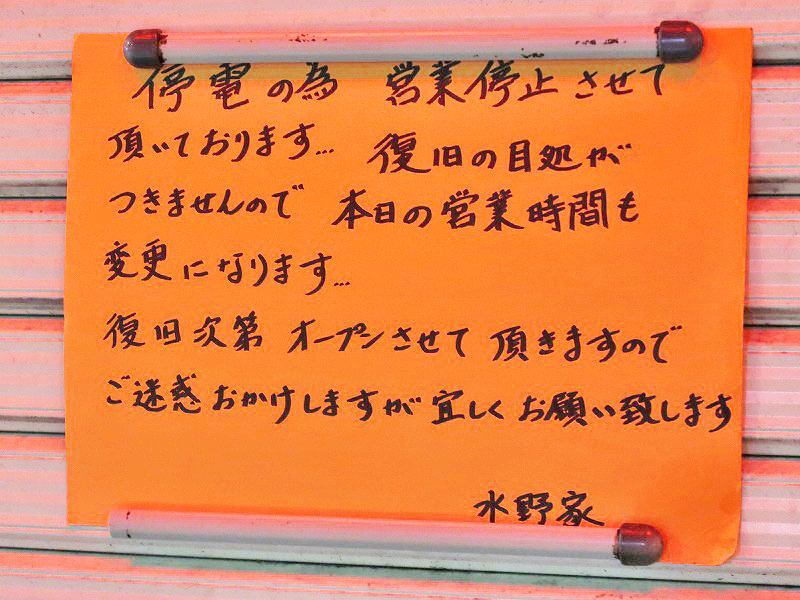 停電の為 営業停止させて
頂いております… 復旧の目処が
つきませんので 本日の営業時間も
変更になります…
復旧次第 オープンさせて 頂きますので
ご迷惑おかけしますが 宜しく お願い致します
水野家